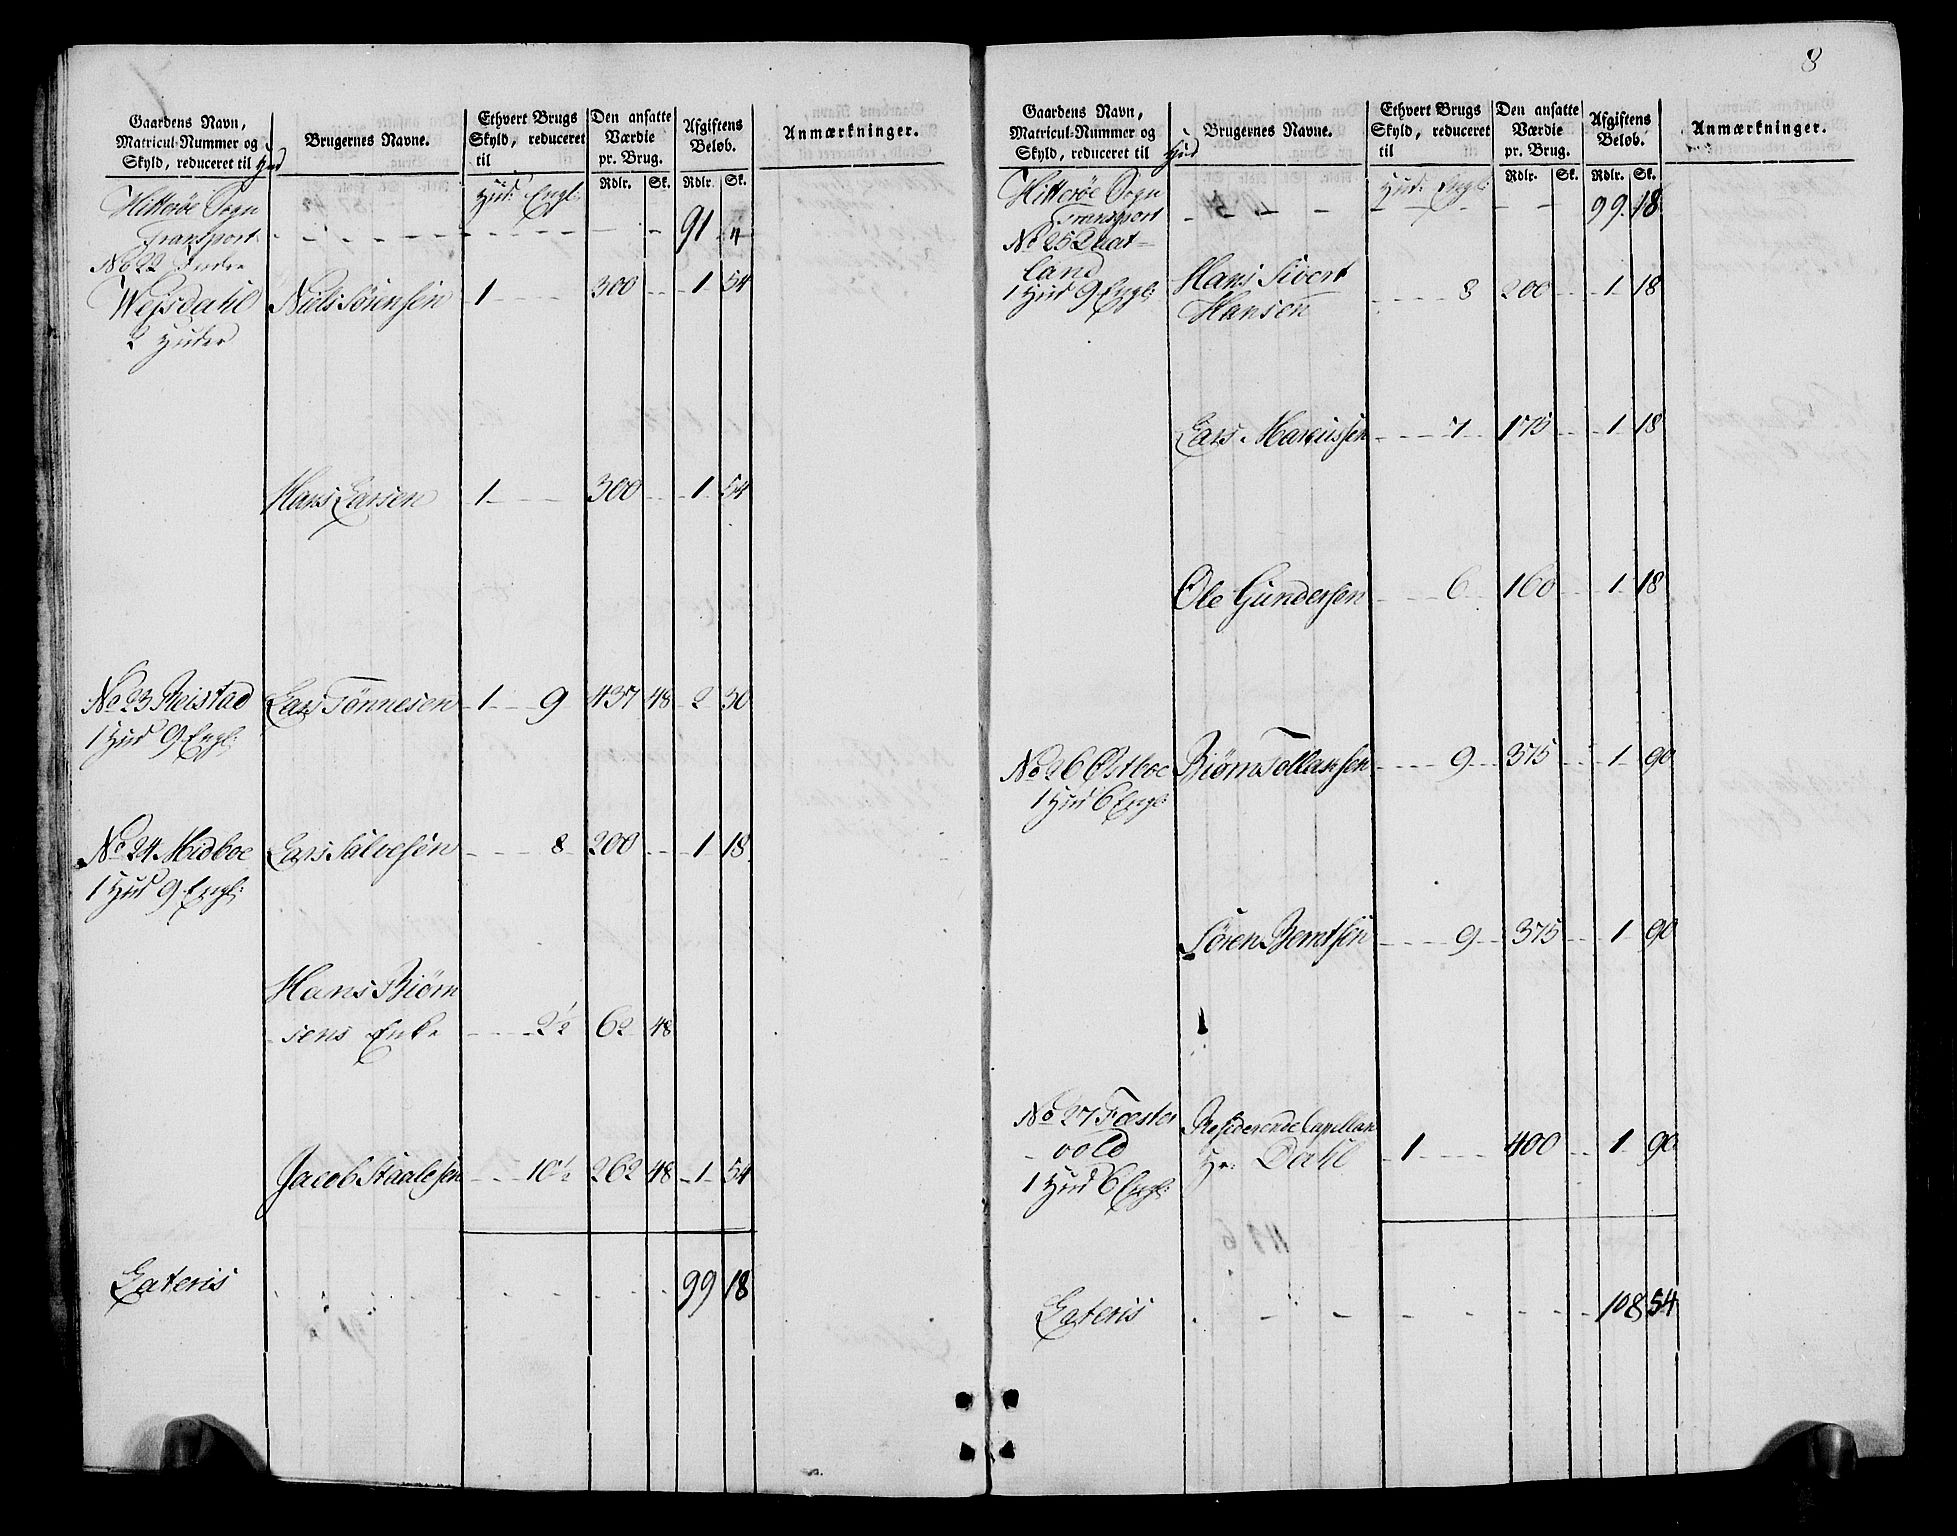 Gaardens Navn, Matricul-Nummer og Skyld, reduceret til Hud
Brugernes Navne.
Ethvert Brugs Skyld, reduceret til
Den ansatte Værdie pr. Brug.
Afgiftens Beløb.
Anmærkninger.
Rdlr. Sk. Rdlr. Sk.
Hitterøe Sogn Hud: Engl:
Transport 91
No 22 Indre
Weisdahl Niels Sørensen 1 300 1 54
2 Huder
Hans Larsen 1 300 1 54
No 23 Reistad Lars Tønnesen 1 9 437 48 2 30
1 Hud 9 Engl:
No 24 Midboe Lars Salvesen 8 200 1 18
1 Hud 9 Engl:
Hans Biørn
sens Enke 2½ 62 48
Jacob Staalesen 10½ 262 48 1 54
Lateris 99 18
8
Gaardens Navn, Matricul-Nummer og Skyld, reduceret til Hud
Brugernes Navne.
Ethvert Brugs Skyld, reduceret til
Den ansatte Værdie pr. Brug.
Afgiftens Beløb.
Anmærkninger.
Rdlr. Sk. Rdlr. Sk.
Hitterøe Sogn Hud: Engl:
Transport 99 18
No 25 Quat-
land Hans Sivert 8 200 1 18
1 Hud 9 Engl: Hansen
Lars Marcussen 7 175 1 18
Ole Gundersen 6 160 1 18
No 26 Østboe Biørn Tollaksen 9 375 1 90
1 Hud 6 Engl:
Søren Berntsen 9 375 1 90
No 27 Fæster Residerende Capellan
vold Hr: Dahl 1 400 1 90
1 Hud 6 Engl:
Lateris 108 54